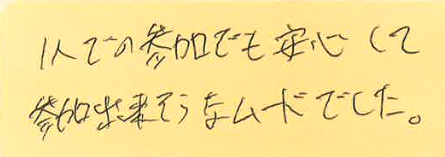 1人での参加でも安心して
参加出来そうなムードでした。